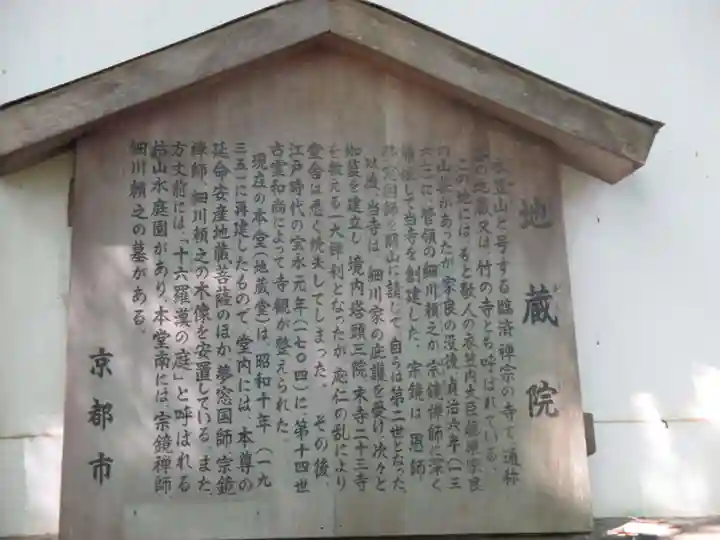 地蔵院
山と号する臨済禅宗の寺で、通称
の地蔵又は竹の寺とも呼ばれている。
この地には、もと歌人の衣笠内大臣藤原家良
の山荘があったが、家良の没後、貞治六年(一三
六七)に、管領の細川頼之が宗鏡禅師に深く
帰依して当寺を創建した。宗鏡は、恩師
夢窓国師を開山に請じて、自らは第二世となった。
以後、当寺は、細川家の庇護を受け、次々と
伽藍を建立し、境内塔頭三院、末寺二十三寺
を数える一大禅刹となったが、応仁の乱により
堂舎は悉く焼失してしまった。その後、
江戸時代の宝永元年(一七〇四)に、第十四世
古霊和尚によって寺観が整えられた。
現在の本堂(地蔵堂)は、昭和十年(一九
三五)に再建したもので、堂内には、本尊の
延命安産地蔵菩薩のほか、夢窓国師、宗鏡
禅師、細川頼之の木像を安置している。また、
方丈前には、「十六羅漢の庭」と呼ばれる
枯山水庭園があり、本堂南には、宗鏡禅師、
細川頼之の墓がある。
京都市